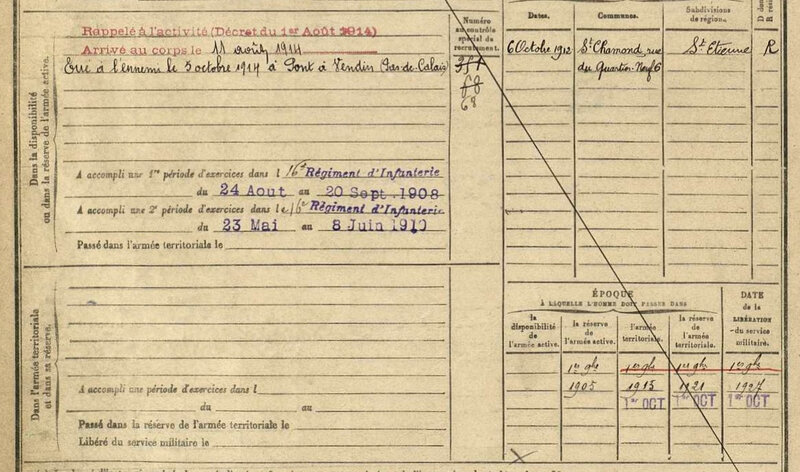 Rappelé à l'activité (Décret du 1er Août 1914)
Arrivé au corps le 11 août 1914
Tué à l'ennemi le 5 octobre 1914 à Pont à Vendin (Pas-de-Calais)
Dans la disponibilité
ou dans la réserve de l'armée active.
A accompli une 1re période d'exercices dans l 16e Régiment d'Infanterie
du 24 Aout au 20 Sept. 1908
A accompli une 2e période d'exercices dans le 16e Régiment d'Infanterie
du 23 Mai au 8 Juin 1910
Passé dans l'armée territoriale le
Dans l'armée territoriale
et dans sa réserve.
A accompli une période d'exercices dans l
du au
Passé dans la réserve de l'armée territoriale le
Libéré du service militaire le
Numéro
au contrôle
spécial du
recrutement.
68
68
Dates.
Communes.
Subdivisions
de région.
6 Octobre 1912 St Chamond, rue St Etienne R
du Quartier-Neuf 6
ÉPOQUE
À LAQUELLE L'HOMME DOIT PASSER DANS
DATE
de la
LIBÉRATION
du service
militaire.
la
disponibilité
de l'armée active.
la réserve
de
l'armée active.
l'armée
territoriale.
la réserve
de
l'armée
territoriale.
1er 9bre 1er 9bre 1er 9bre 1er 9bre
1905 1915 1921 1927
1er OCT 1er OCT 1er OCT